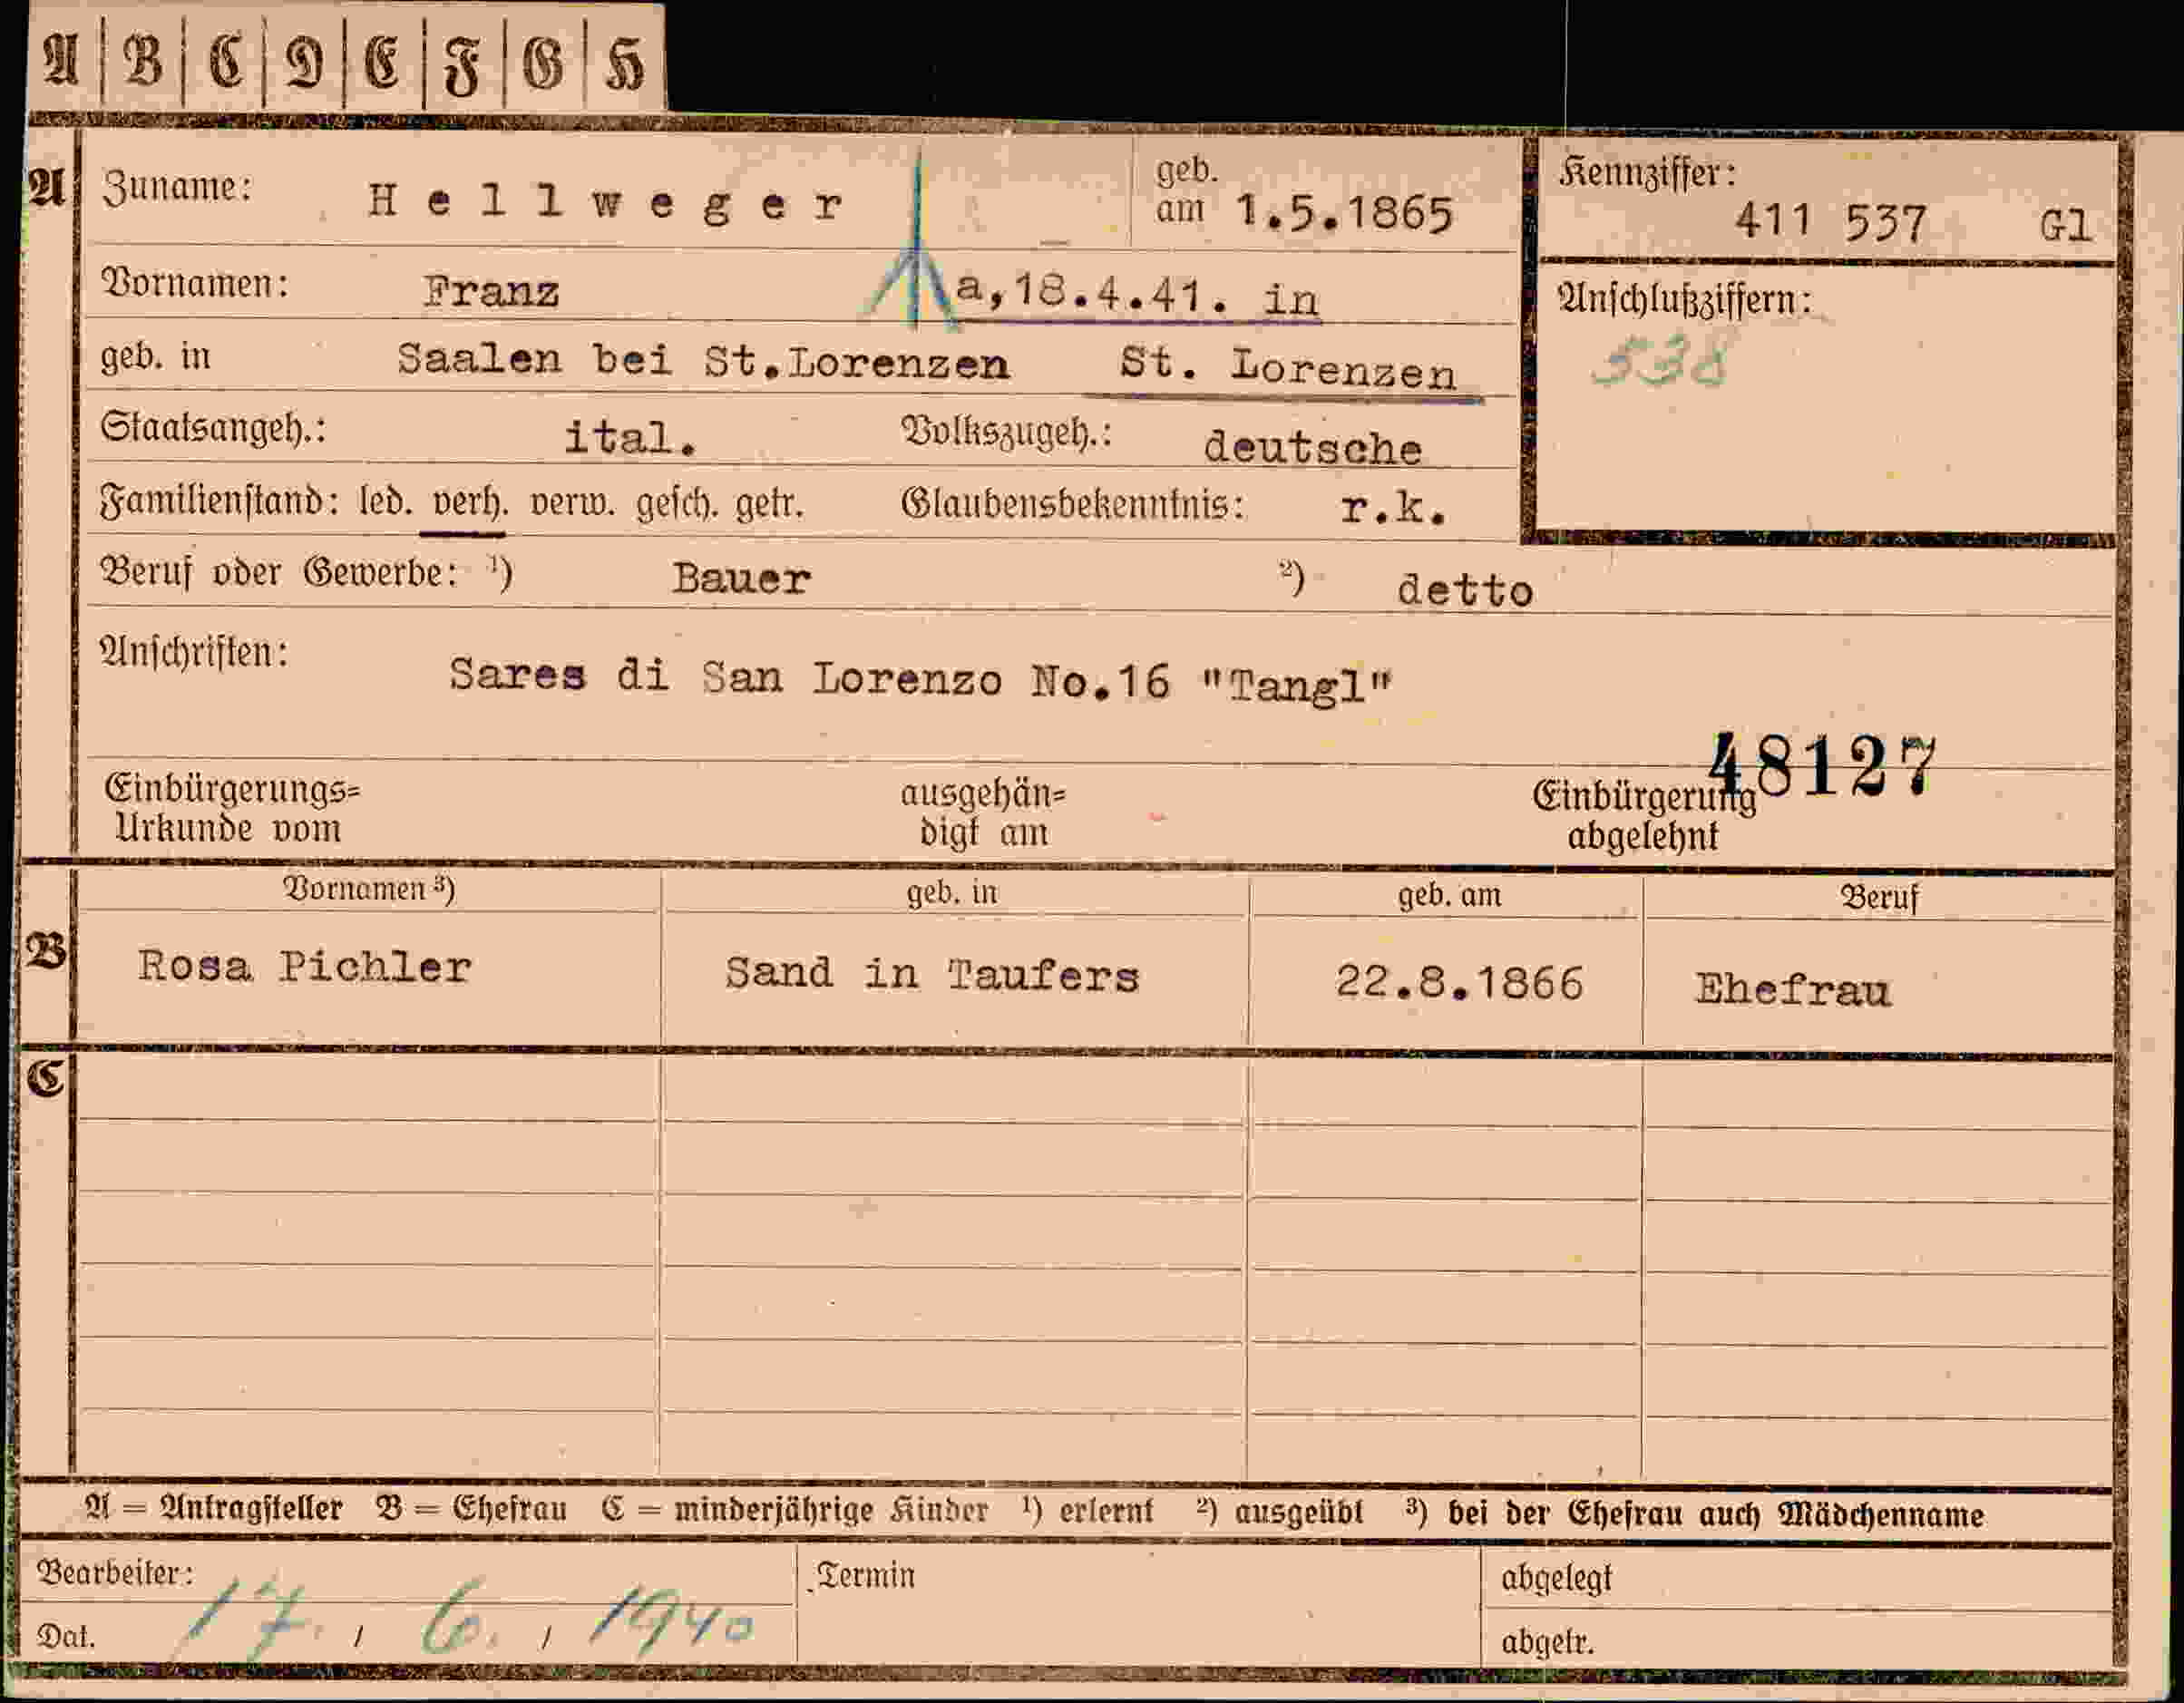 A B C D E F G H
A Zuname: Hellweger geb. am 1.5.1865 Kennziffer: 411 537 Gl
Vornamen: Franz a,18.4.41. in Anschlußziffern:
538
geb. in Saalen bei St.Lorenzen St. Lorenzen
Staatsangeh.: ital. Volkszugeh.: deutsche
Familienstand: led. verh. verw. gesch. getr. Glaubensbekenntnis: r.k.
Beruf oder Gewerbe: ¹) Bauer ²) detto
Anschriften: Sares di San Lorenzo No.16 "Tangl"
48127
Einbürgerungs= ausgehän= Einbürgerung
Urkunde vom digt am abgelehnt
Vornamen ³) geb. in geb. am Beruf
B Rosa Pichler Sand in Taufers 22.8.1866 Ehefrau
C
A = Antragsteller B = Ehefrau C = minderjährige Kinder ¹) erlernt ²) ausgeübt ³) bei der Ehefrau auch Mädchenname
Bearbeiter: Termin abgelegt
Dat. 17. / 6. / 1940 abgetr.